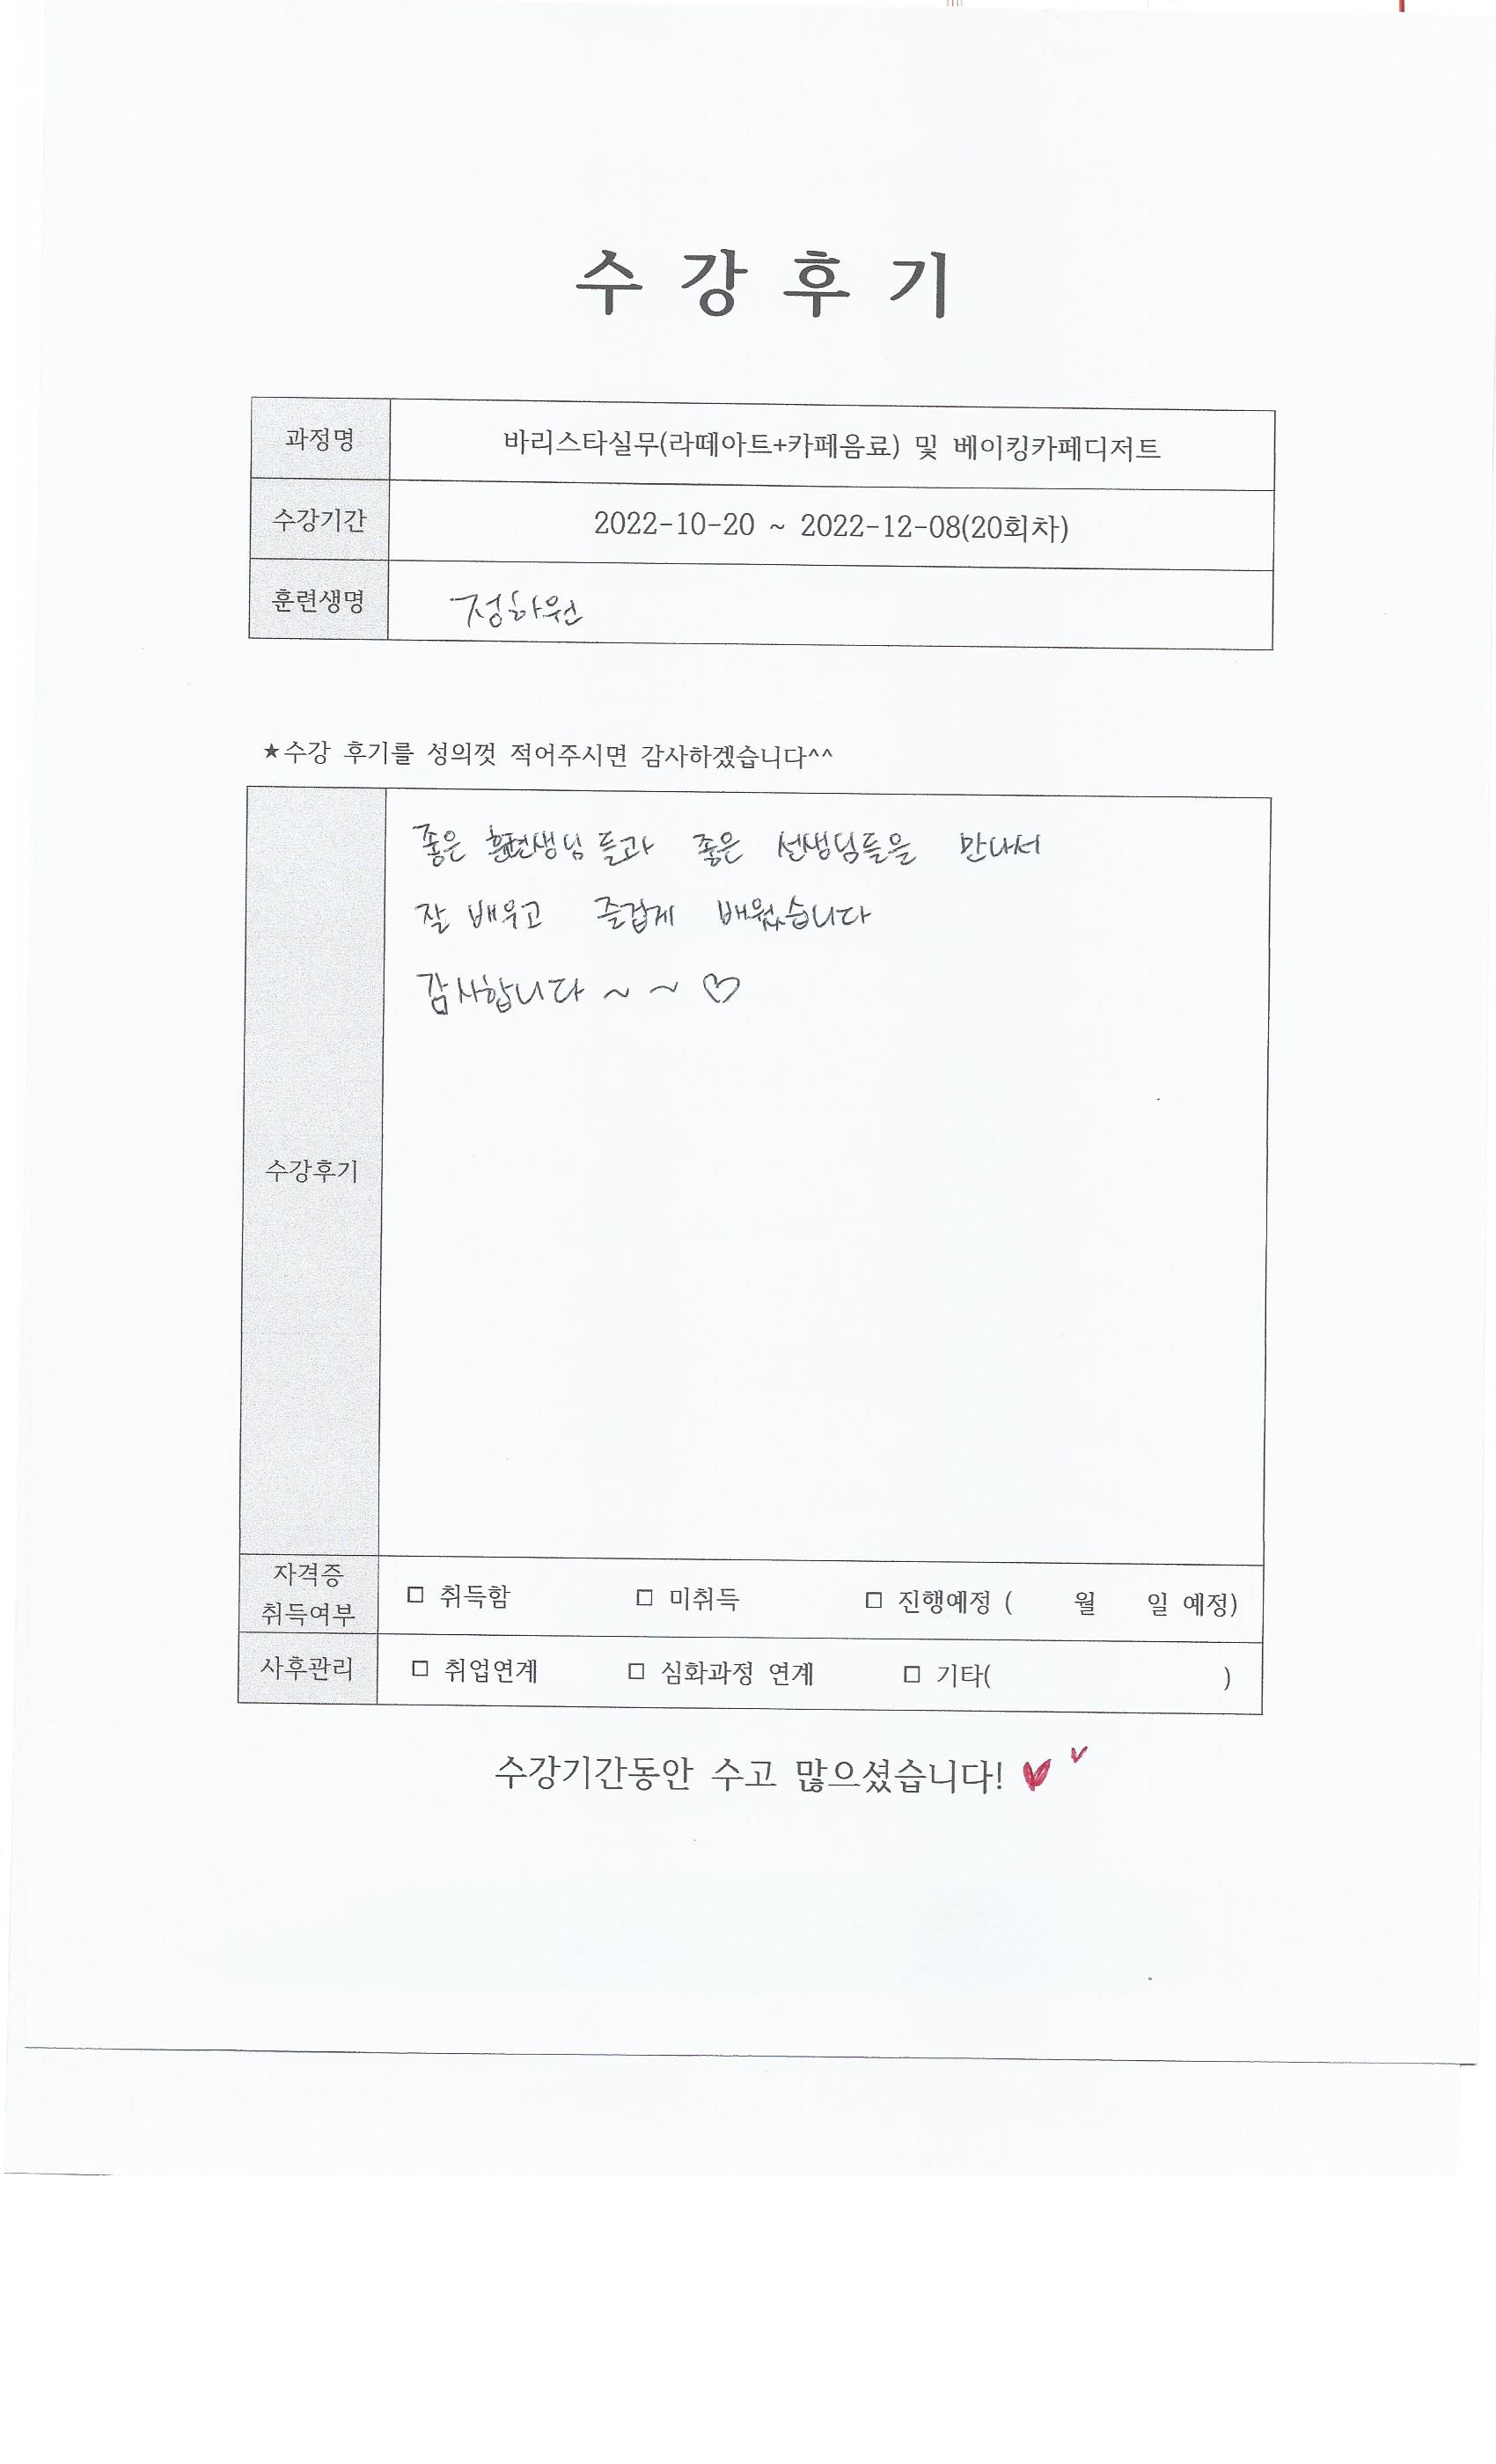 수 강 후 기
과정명 바리스타실무(라떼아트+카페음료) 및 베이킹카페디저트
수강기간 2022-10-20 ~ 2022-12-08(20회차)
훈련생명 정하원
★수강 후기를 성의껏 적어주시면 감사하겠습니다^^
좋은 훈련생님들과 좋은 선생님들을 만나서
잘 배우고 즐겁게 배웠습니다
감사합니다 ~ ~ ♡
수강후기
자격증
취득여부 □ 취득함 □ 미취득 □ 진행예정 ( 월 일 예정)
사후관리 □ 취업연계 □ 심화과정 연계 □ 기타( )
수강기간동안 수고 많으셨습니다! ♥ ♥